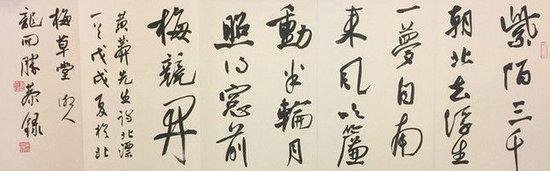 紫陌三千
朝北去浮生
一夢自南
來風吹簾
動半輪月
照得窓前
梅競開
黄莽先生詩北漂
一首戊戌夏於北
梅草堂 湘人
龍開勝恭録